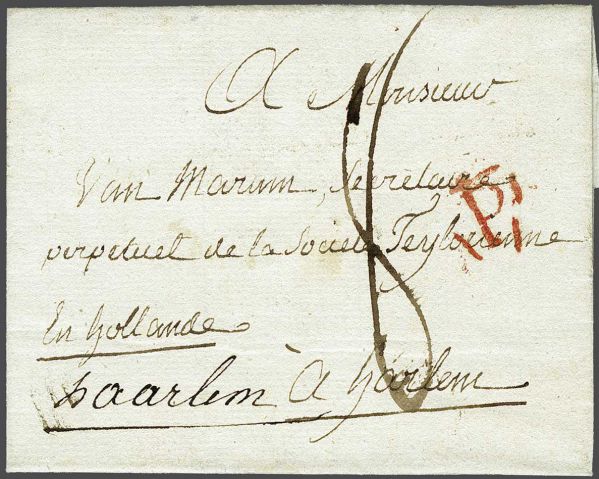 A Monsieur
Van Marum, Secretaire
perpetuel de la Societé Teylorienne
En hollande
haarlem à harlem
8
P